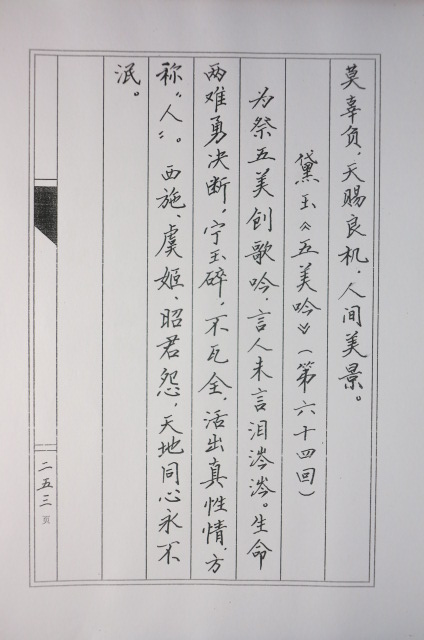 莫辜负，天赐良机，人间美景。
黛玉《五美吟》（第六十四回）
为祭五美创歌吟，言人未言泪涔涔。生命
两难勇决断，宁玉碎，不瓦全，活出真性情，方
称“人”。西施、虞姬、昭君怨，天地同心永不
泯。
二五三页